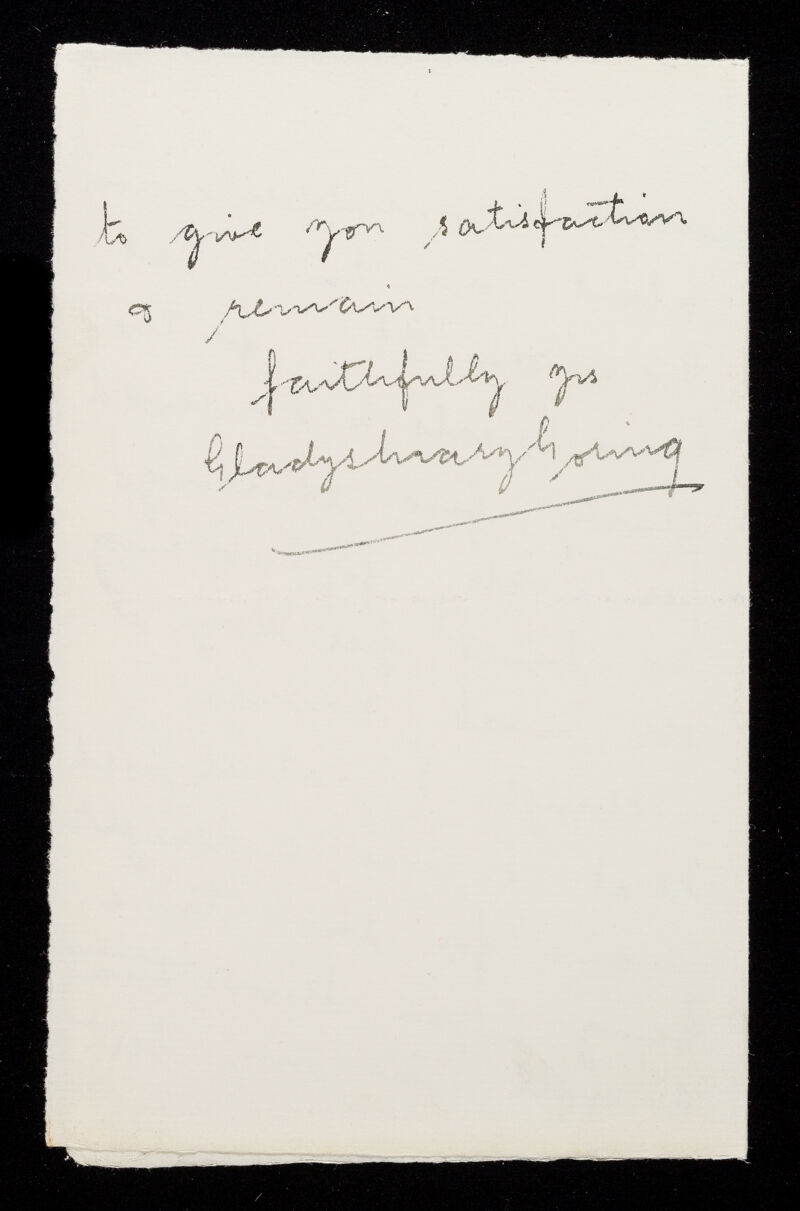 to give you satisfaction
& remain
faithfully yrs
Gladys Mary Goring